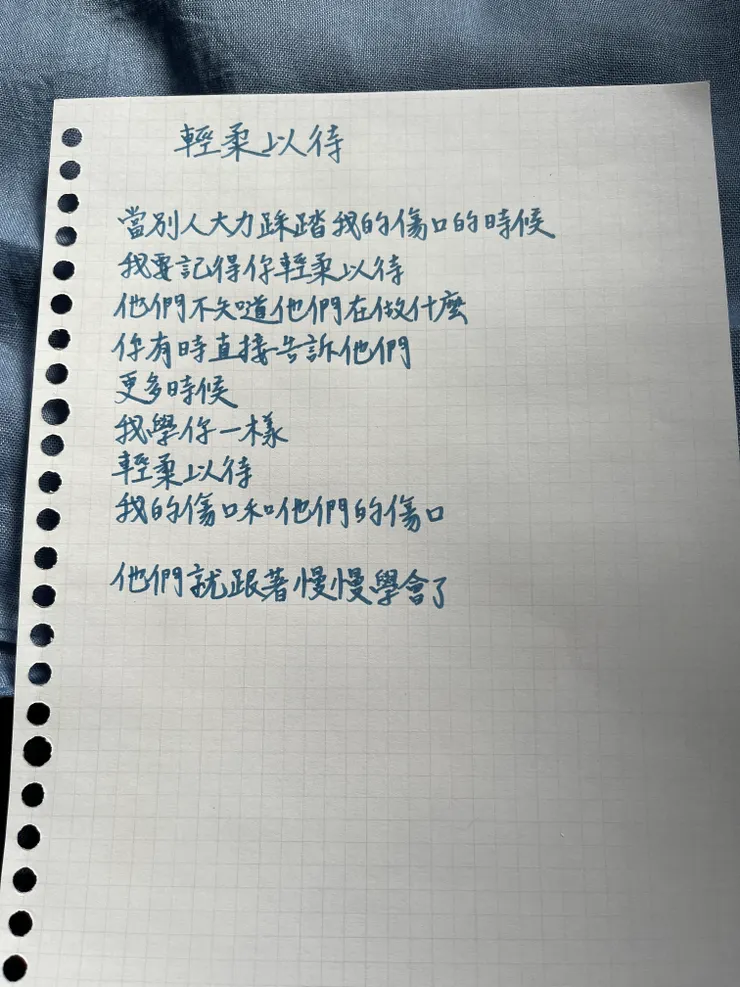 輕柔以待
當別人大力踩踏我的傷口的時候
我要記得你輕柔以待
他們不知道他們在做什麼
你有時直接告訴他們
更多時候
我學你一樣
輕柔以待
我的傷口和他們的傷口
他們就跟著慢慢學會了